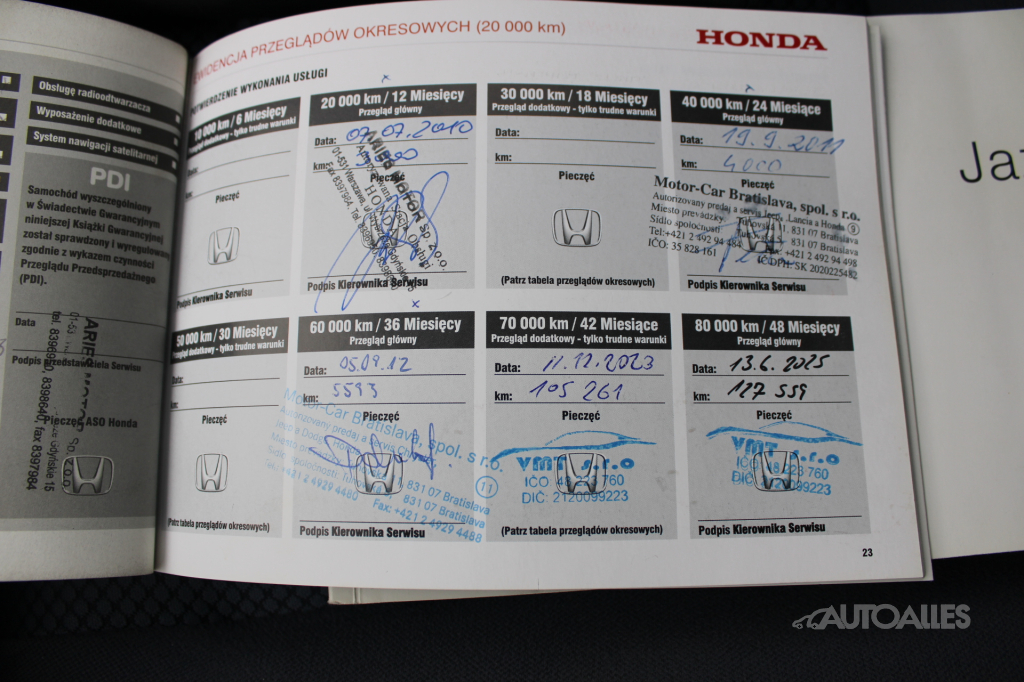 EWIDENCJA PRZEGLĄDÓW OKRESOWYCH (20 000 km)
HONDA
POTWIERDZENIE WYKONANIA USŁUGI
Obsługę radioodtwarzacza
Wyposażenie dodatkowe
System nawigacji satelitarnej
PDI
Samochód wyszczególniony
w Świadectwie Gwarancyjnym
niniejszej Książki Gwarancyjnej
został sprawdzony i wyregulowany
zgodnie z wykazem czynności
Przeglądu Przedsprzedażnego
(PDI).
Data
Podpis przedstawiciela Serwisu
Pieczęć ASO Honda
fax 8397984
10 000 km / 6 Miesięcy
Przegląd dodatkowy - tylko trudne warunki
Pieczęć
Podpis Kierownika Serwisu
20 000 km / 12 Miesięcy
Przegląd główny
Data: 07.07.2010
km:
Pieczęć
ARIES MOTOR Sp. z o.o.
HONDA
Podpis Kierownika Serwisu
30 000 km / 18 Miesięcy
Przegląd dodatkowy - tylko trudne warunki
Data:
km:
Pieczęć
(Patrz tabela przeglądów okresowych)
40 000 km / 24 Miesiące
Przegląd główny
Data: 19.9.2011
km: 4000
Pieczęć
Motor-Car Bratislava, spol. s r.o.
Autorizovaný predaj a servis Jeep, Lancia a Honda 9
Miesto prevádzky: Tuhovská 1, 831 07 Bratislava
Sídlo spoločnosti: 831 07 Bratislava
Tel:+421 2 492 94 484 +421 2 492 94 498
IČO: 35 828 161 IČ DPH: SK 2020225482
Podpis Kierownika Serwisu
50 000 km / 30 Miesięcy
Przegląd dodatkowy - tylko trudne warunki
Data:
km:
Pieczęć
(Patrz tabela przeglądów okresowych)
60 000 km / 36 Miesięcy
Przegląd główny
Data: 05.09.12
km: 5593
Pieczęć
Motor-Car Bratislava, spol. s r.o.
831 07 Bratislava
831 07 Bratislava
+421 2 4929 4480 Fax: +421 2 4929 4488
11
Podpis Kierownika Serwisu
70 000 km / 42 Miesiące
Przegląd dodatkowy - tylko trudne warunki
Data: 11.12.2023
km: 105 261
Pieczęć
VMT s.r.o
IČO 760
DIČ: 2120099223
(Patrz tabela przeglądów okresowych)
80 000 km / 48 Miesięcy
Przegląd główny
Data: 13.6.2025
km: 127 559
Pieczęć
VMT s.r.o
IČO 760
DIČ 223
Podpis Kierownika Serwisu
23
AUTOALLES